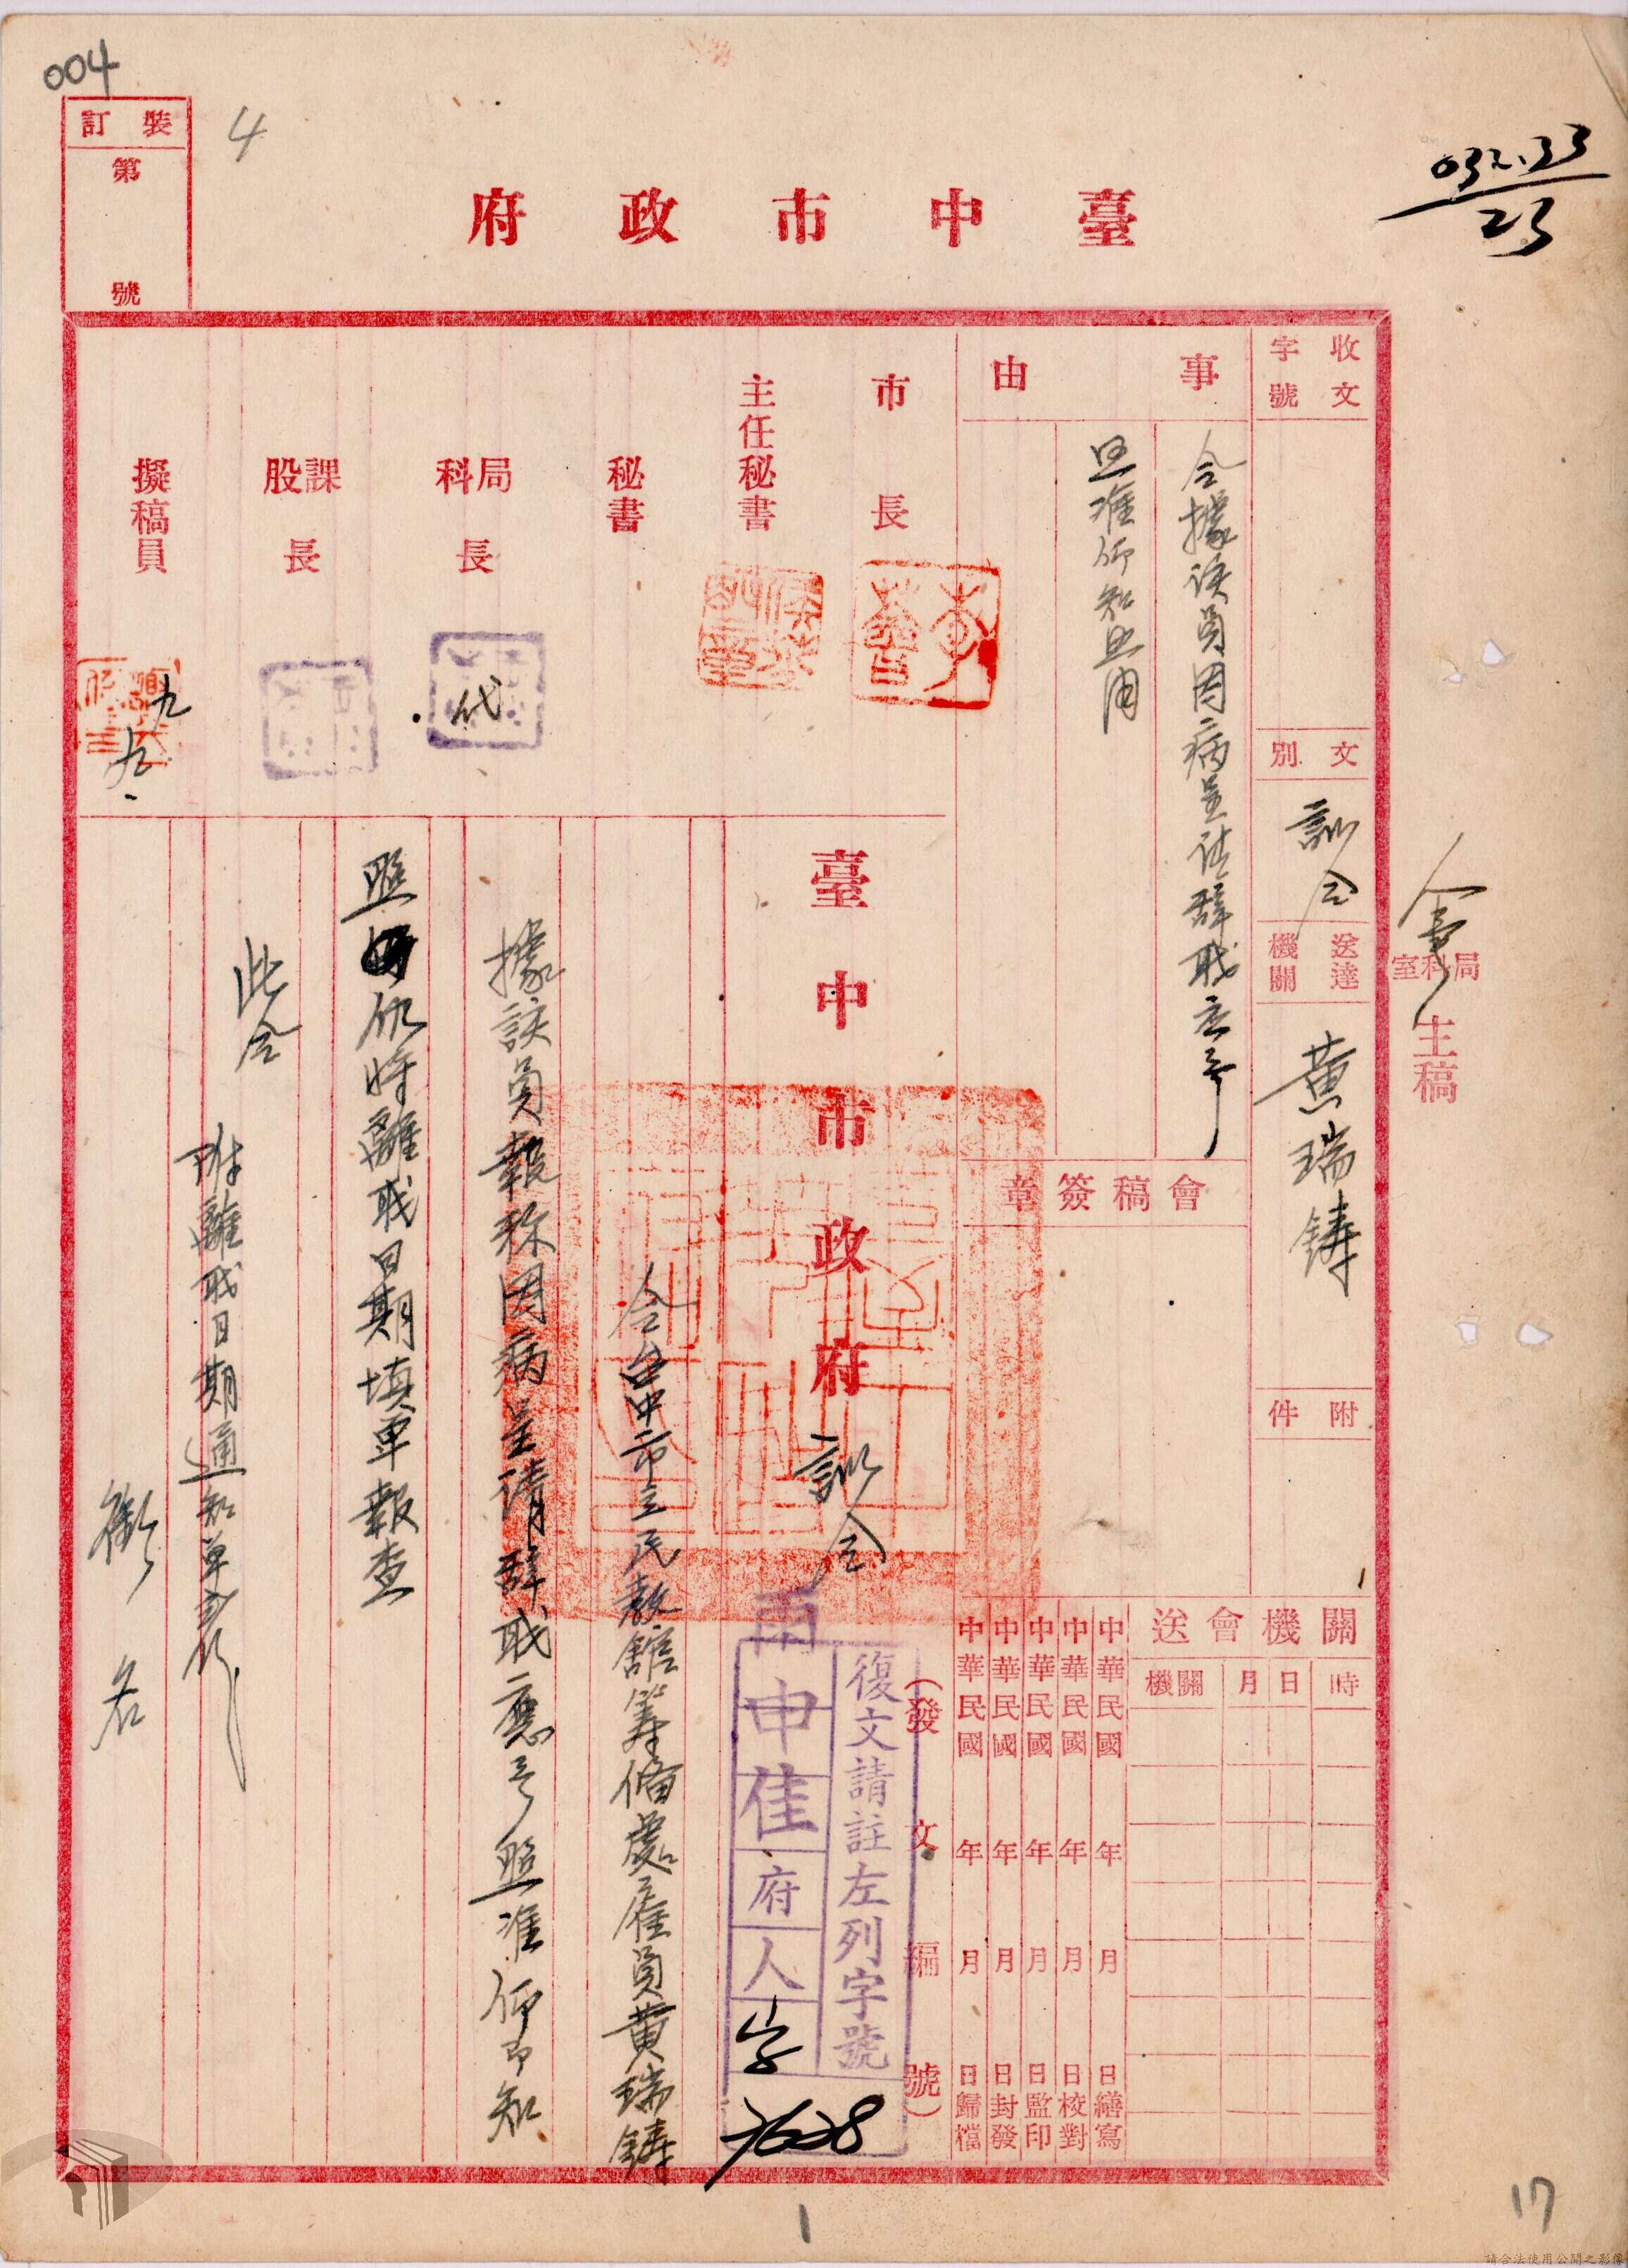 004
4
裝訂
第
號
032.33
23
臺中市政府
收文
字號
文別
訓令
送達
機關
黃瑞鑄
附件
局科室
主稿
事由
令據該員因病呈請辭職應予
照准仰知照由
會稿簽章
關機會送
機關
月日
時
市長
主任秘書
秘書
局科長
代
課股長
擬稿員
九
九.
中華民國 年 月 日繕寫
中華民國 年 月 日校對
中華民國 年 月 日監印
中華民國 年 月 日封發
中華民國 年 月 日歸檔
（發文編號）
復文請註左列字號
申佳府人字
7628
臺中市政府訓令
令台中市立民教館籌備處雇員黃瑞鑄
據該員報称因病呈請辭職應予照准仰即知
照仍將離職日期填單報查
此令
附離職日期通知單
銜名
1
17
請合法使用公開之影像